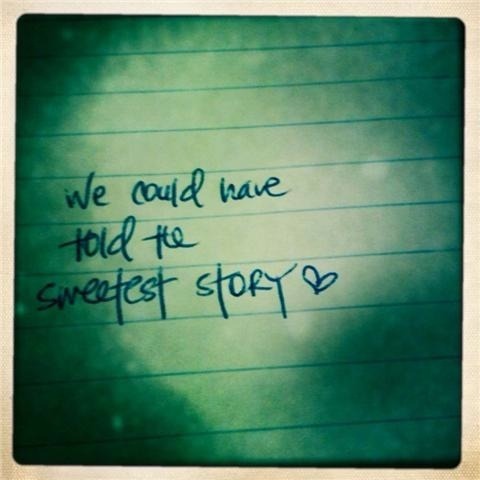 we could have
told the
sweetest story